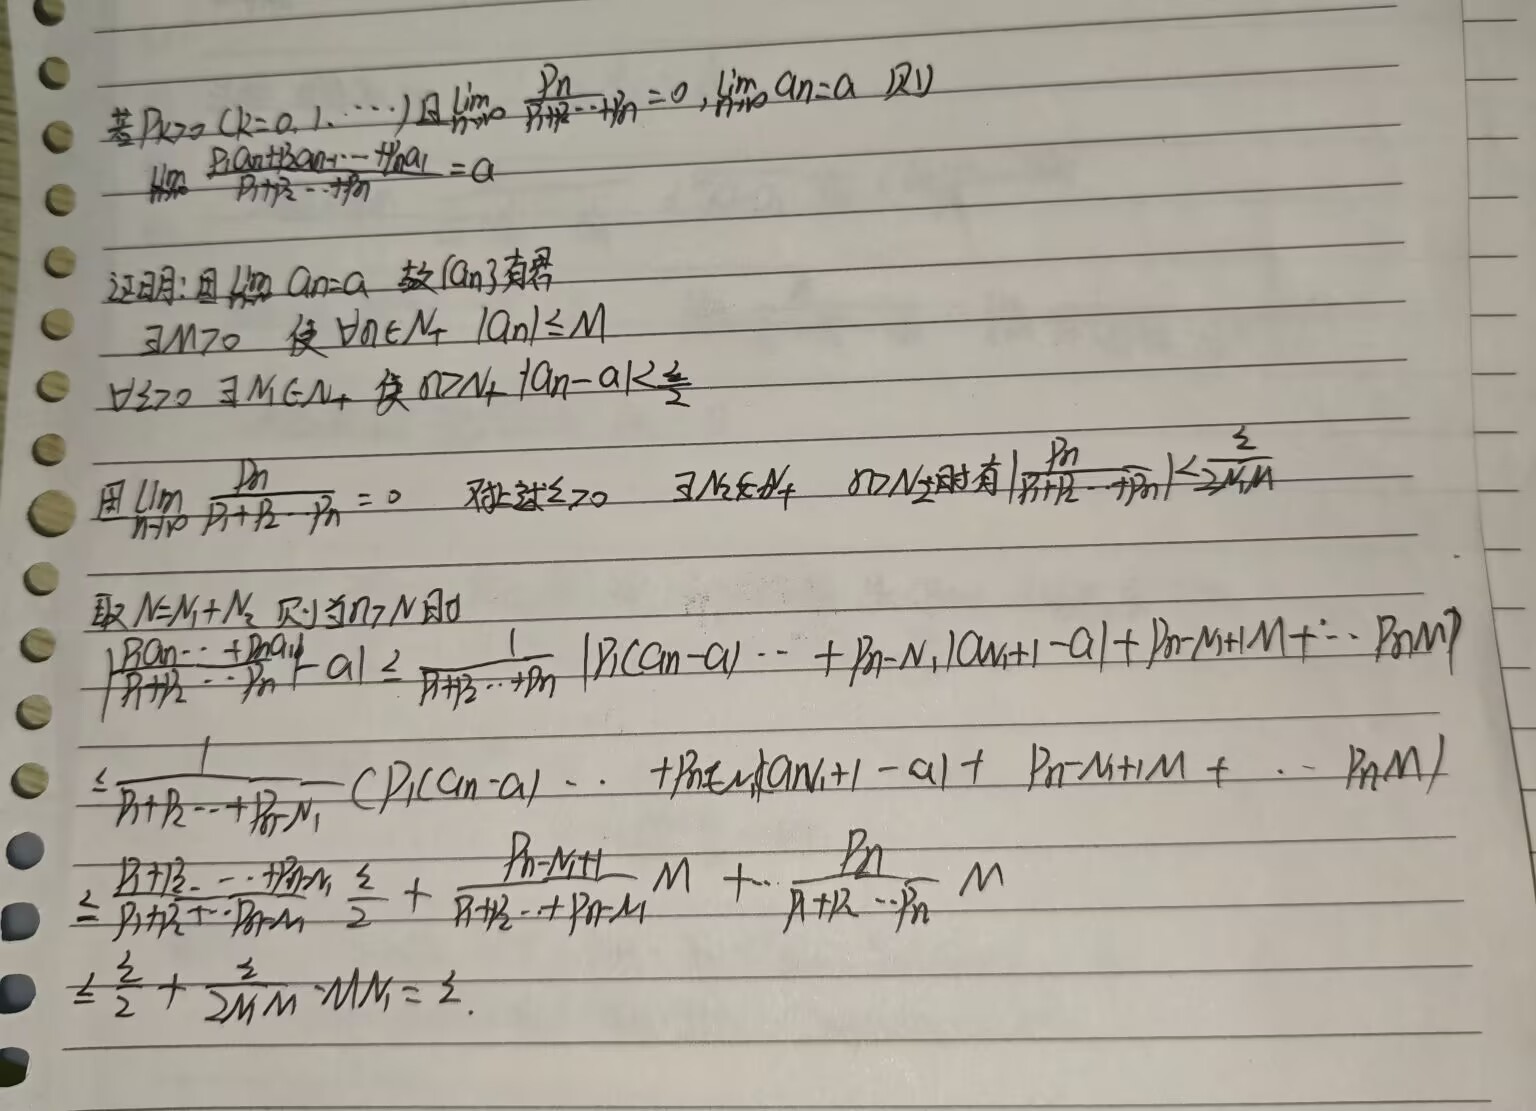 若 Pk>0 (k=0.1.…) 且 lim n→∞ Pn/(P1+P2…+Pn) =0, lim n→∞ an=a 则
lim n→∞ (P1an+P2an-1…+Pna1)/(P1+P2…+Pn) =a
证明: 因 lim n→∞ an=a 故{an}有界
∃M>0 使 ∀n∈N+ |an|≤M
∀ε>0 ∃N1∈N+ 使 n>N+ |an-a|<ε/2
因 lim n→∞ Pn/(P1+P2…Pn) =0 对上述ε>0 ∃N2∈N+ n>N2时有 |Pn/(P1+P2…+Pn)|<ε/(2N1M)
取 N=N1+N2 则当n>N时
|(P1an…+Pna1)/(P1+P2…Pn) -a| ≤ 1/(P1+P2…+Pn) |P1(an-a)…+Pn-N1|aN1+1-a|+Pn-N1+1M+…PnM|
≤ 1/(P1+P2…+Pn-N1) (P1(an-a)… +Pn-N1|aN1+1-a|+ Pn-N1+1M+ … PnM)
≤ (P1+P2…+Pn-N1)/(P1+P2+…Pn-N1) ε/2 + Pn-N1+1/(P1+P2…+Pn-N1) M +… Pn/(P1+P2…Pn) M
≤ ε/2 + ε/(2N1M)·MN1=ε.